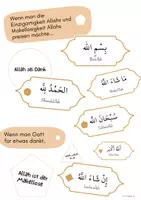 Wenn man die
Einzigartigkeit Allahs und
Makellosigkeit Allahs
preisen möchte...
بِسْمِ اللّٰه
Bismillah
Allah sei Dank
مَا شَاءَ اللّٰه
الْحَمْدُ لِلّٰه
Alhamdulillah
سُبْحَانَ اللّٰه
Subhanallah
Wenn man Gott
für etwas dankt.
Allah ist der
Makellose
إِنْ شَاءَ اللّٰه